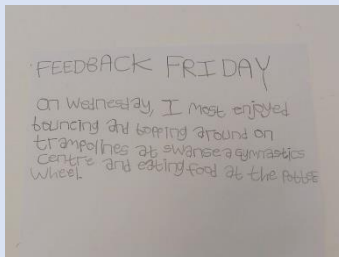 FEEDBACK FRIDAY
On Wednesday, I most enjoyed
bouncing and bopping around on
trampolines at swansea gymnastics
Centre and eating food at the
Wheel.